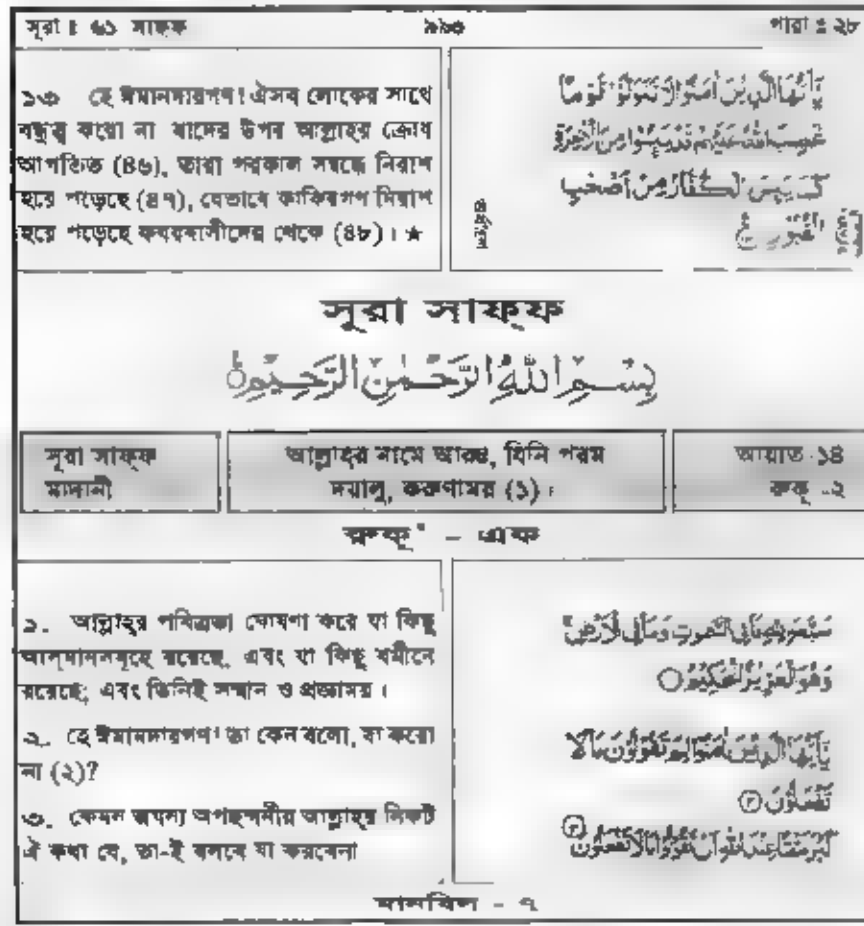 সূরা ঃ ৬১ সাফ্ফ ৯৯৩ পারা ঃ ২৮
১৩. হে ঈমানদারগণ! ঐসব লোকের সাথে
বন্ধুত্ব করো না যাদের উপর আল্লাহ্‌র ক্রোধ
আপতিত (৪৬), তারা পরকাল সম্বন্ধে নিরাশ
হয়ে পড়েছে (৪৭), যেভাবে কাফিরগণ নিরাশ
হয়ে পড়েছে কবরবাসীদের থেকে (৪৮)। ★
يٰۤاَيُّهَا الَّذِيْنَ اٰمَنُوْا لَا تَتَوَلَّوْا قَوْمًا
غَضِبَ اللّٰهُ عَلَيْهِمْ قَدْ يَئِسُوْا مِنَ الْاٰخِرَةِ
كَمَا يَئِسَ الْكُفَّارُ مِنْ اَصْحٰبِ
الْقُبُوْرِ
সূরা সাফ্ফ
بِسْمِ اللّٰهِ الرَّحْمٰنِ الرَّحِيْمِ
সূরা সাফ্ফ
মাদানী
আল্লাহ্‌র নামে আরম্ভ, যিনি পরম
দয়ালু, করুণাময় (১)।
আয়াত-১৪
রুকূ'-২
রুকূ' - এক
১. আল্লাহ্‌র পবিত্রতা ঘোষণা করে যা কিছু
আস্‌মানসমূহে রয়েছে, এবং যা কিছু যমীনে
রয়েছে; এবং তিনিই সম্মান ও প্রজ্ঞাময়।
২. হে ঈমানদারগণ! তা কেন বলো, যা করো
না (২)?
৩. কেমন জঘন্য অপছন্দনীয় আল্লাহ্‌র নিকট
ঐ কথা যে, তা-ই বলবে যা করবেনা
سَبَّحَ لِلّٰهِ مَا فِى السَّمٰوٰتِ وَمَا فِى الْاَرْضِ
وَهُوَ الْعَزِيْزُ الْحَكِيْمُ
يٰۤاَيُّهَا الَّذِيْنَ اٰمَنُوْا لِمَ تَقُوْلُوْنَ مَا لَا
تَفْعَلُوْنَ ۲
كَبُرَ مَقْتًا عِنْدَ اللّٰهِ اَنْ تَقُوْلُوْا مَا لَا تَفْعَلُوْنَ ۳
মানযিল - ৭